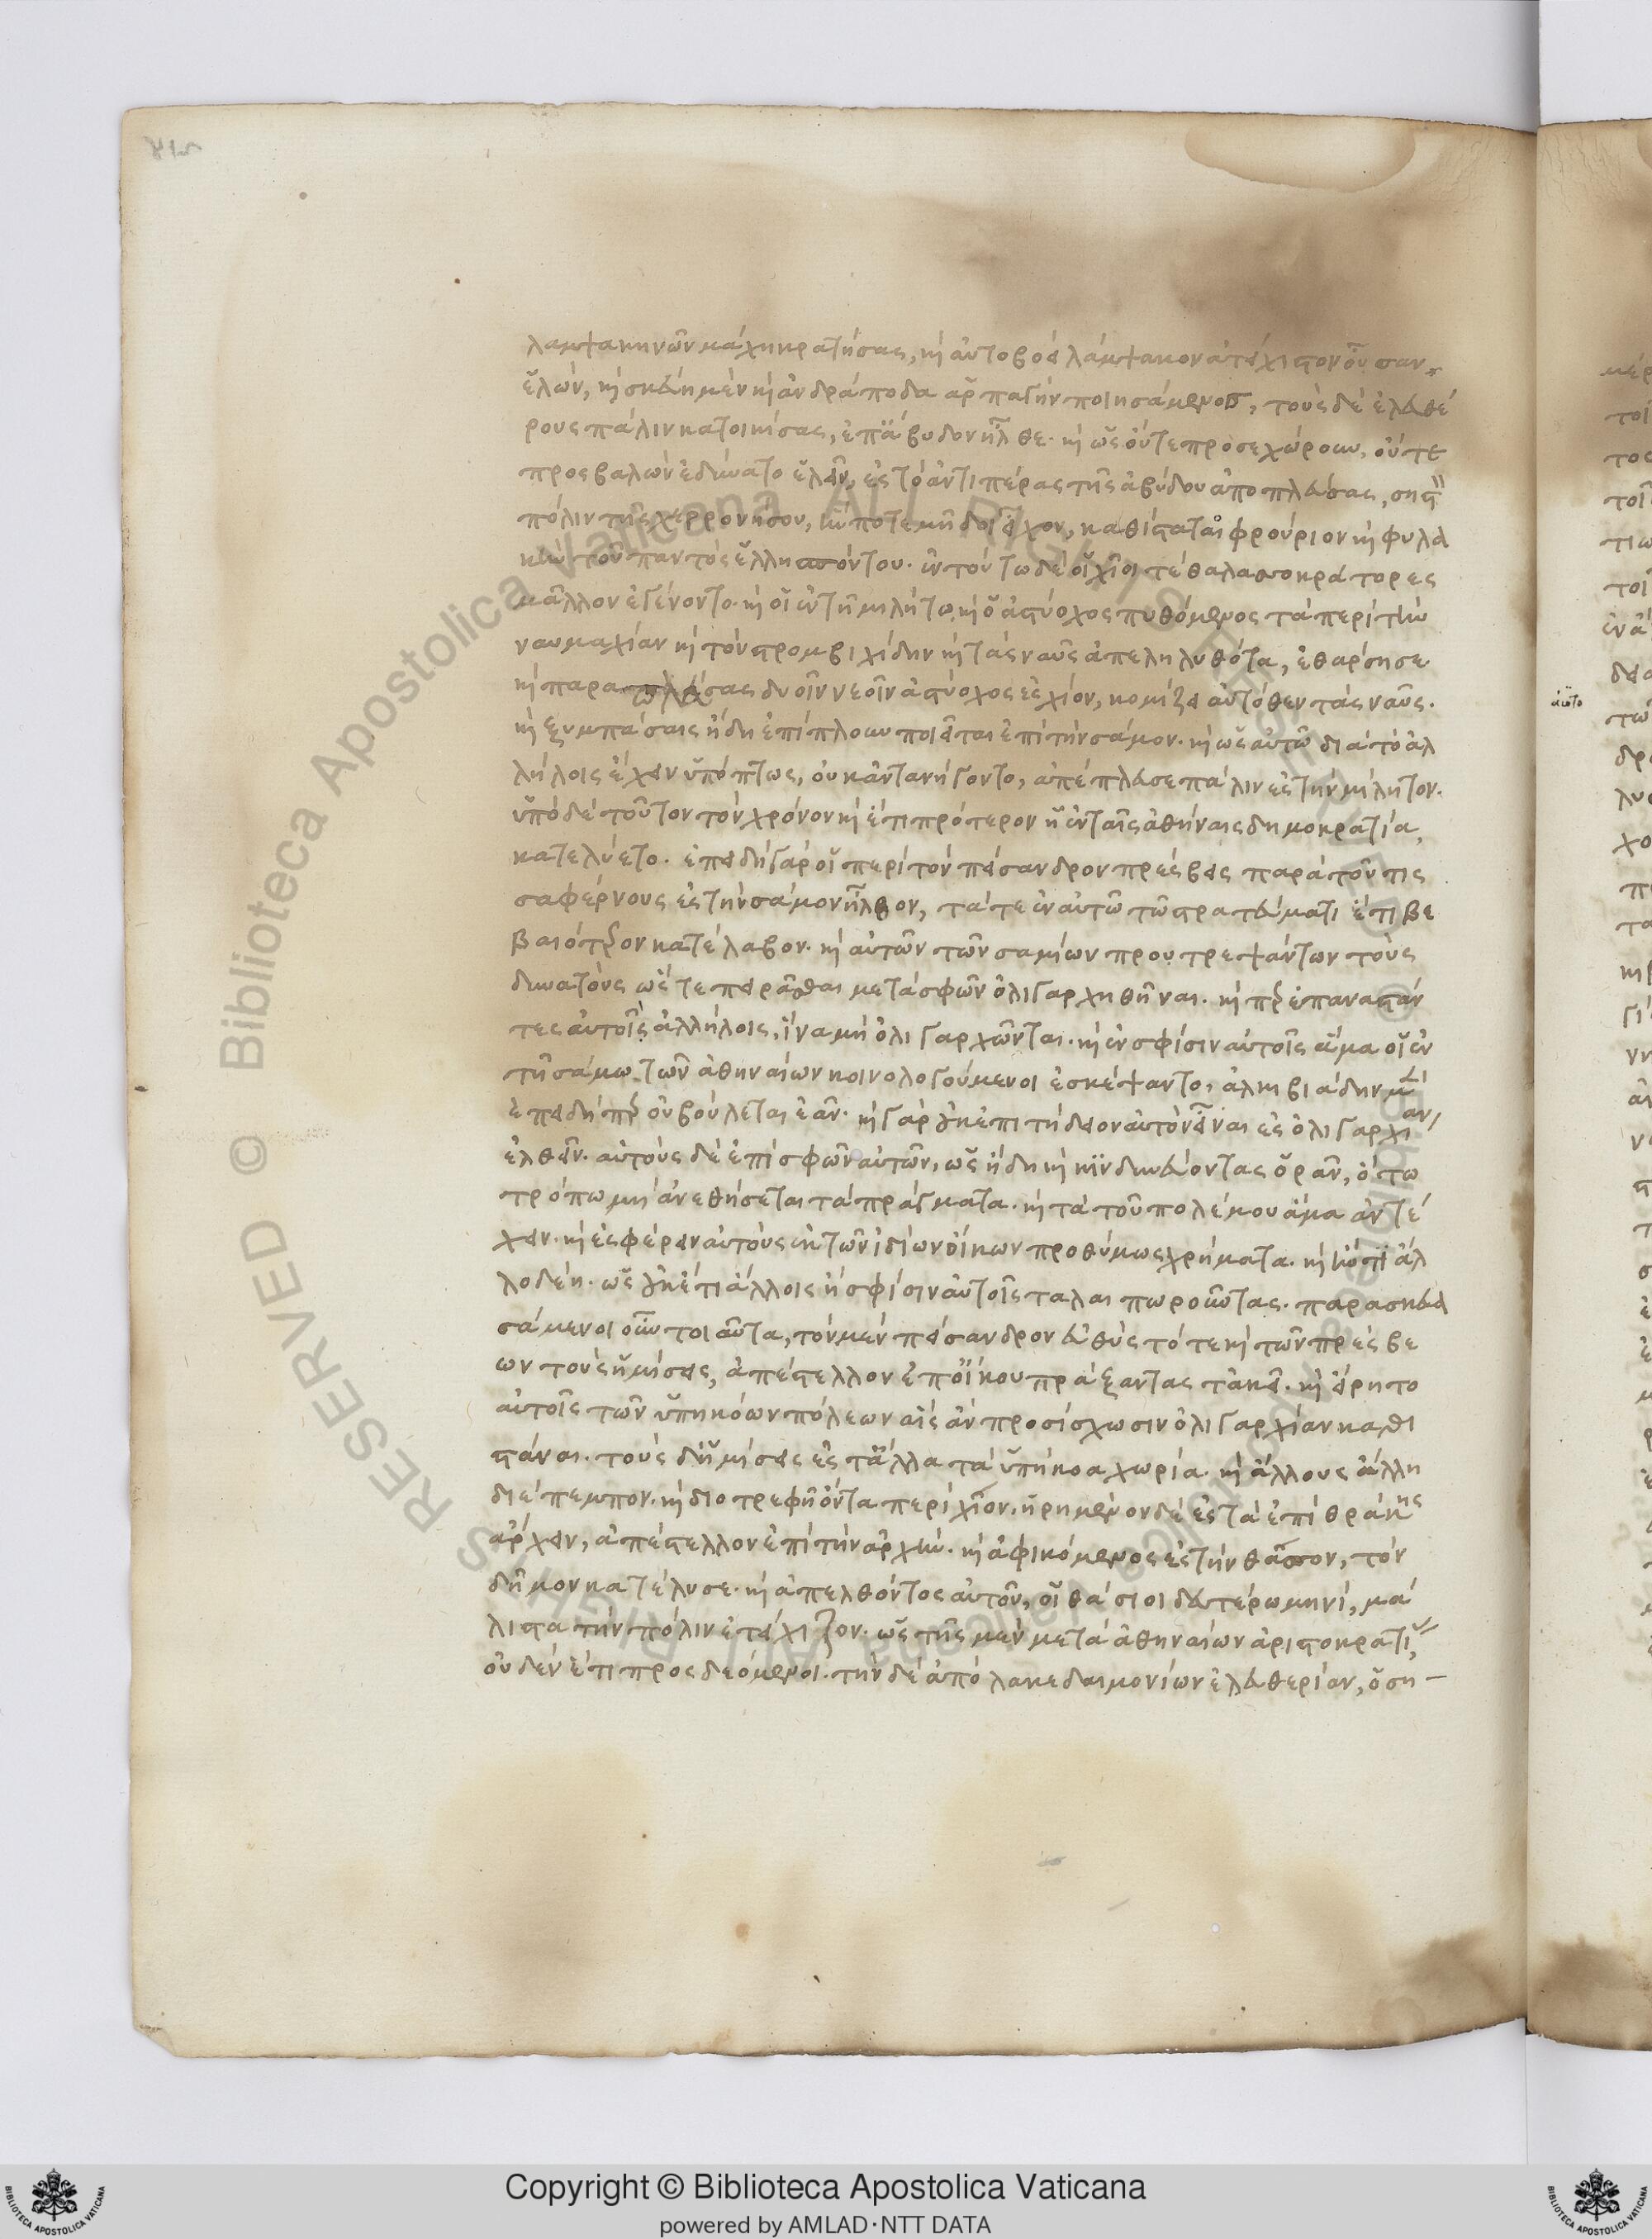 λαμψακηνῶν μάχη κρατήσας, καὶ αὐτοβοεὶ λάμψακον ἀτείχιστον οὖσαν
ἑλών, καὶ σκεύη μὲν καὶ ἀνδράποδα ἁρπαγὴν ποιησάμενος, τοὺς δὲ ἐλευθέ
ρους πάλιν κατοικίσας, ἐπ' ἄβυδον ἦλθε. καὶ ὡς οὔτε προσεχώρουν, οὔτε
προσβαλὼν ἐδύνατο ἑλεῖν, ἐς τὸ ἀντιπέρας τῆς ἀβύδου ἀποπλεύσας, σηστὸν
πόλιν τῆς χερρονήσου, ἥν ποτε μῆδοι εἶχον, καθίσταται φρούριον καὶ φυλα
κὴν τοῦ παντὸς ἑλλησπόντου. ἐν τούτω δὲ οἱ χῖοι τὲ θαλασσοκράτορες
μᾶλλον ἐγένοντο. καὶ οἱ ἐν τῆ μιλήτω καὶ ὁ ἀστύοχος πυθόμενος τὰ περὶ τὴν
ναυμαχίαν καὶ τὸν στρομβιχίδην καὶ τὰς ναῦς ἀπεληλυθότα, ἐθάρσησε
καὶ παραπλεύσας δυοῖν νεοῖν ἀστύοχος ἐς χίον, κομίζει αὐτόθεν τὰς ναῦς.
καὶ ξυμπάσαις ἤδη ἐπίπλουν ποιεῖται ἐπὶ τὴν σάμον. καὶ ὡς αὐτῶ διὰ τὸ ἀλ
λήλοις ἔχειν ὑπόπτως, οὐκ ἀντανήγοντο, ἀπέπλευσε πάλιν ἐς τὴν μίλητον.
ὑπὸ δὲ τοῦτον τὸν χρόνον καὶ ἔτι πρότερον ἡ ἐν ταῖς ἀθήναις δημοκρατία,
κατελύετο. ἐπειδὴ γὰρ οἱ περὶ τὸν πείσανδρον πρέσβεις παρὰ τοῦ τισ
σαφέρνους ἐς τὴν σάμον ἦλθον, τά τε ἐν αὐτῶ τῶ στρατεύματι ἔτι βε
βαιότερον κατέλαβον. καὶ αὐτῶν τῶν σαμίων προυτρεψάντων τοὺς
δυνατοὺς ὥστε πειρᾶσθαι μετὰ σφῶν ὀλιγαρχηθῆναι. καίπερ ἐπαναστάν
τες αὐτοῖς ἀλλήλοις, ἵνα μὴ ὀλιγαρχῶνται. καὶ ἐν σφίσιν αὐτοῖς ἅμα οἱ ἐν
τῆ σάμω τῶν ἀθηναίων κοινολογούμενοι ἐσκέψαντο, ἀλκιβιάδην μὲν
ἐπειδήπερ οὐ βούλεται ἐᾶν. καὶ γὰρ οὐκ ἐπιτήδειον αὐτὸν εἶναι ἐς ὀλιγαρχίαν
ἐλθεῖν. αὐτοὺς δὲ ἐπὶ σφῶν αὐτῶν, ὡς ἤδη καὶ κινδυνεύοντας ὁρᾶν, ὅτω
τρόπω μὴ ἀνεθήσεται τὰ πράγματα. καὶ τὰ τοῦ πολέμου ἅμα ἀντέ
χειν. καὶ ἐσφέρειν αὐτοὺς ἐκ τῶν ἰδίων οἴκων προθύμως χρήματα. καὶ ἤν τι ἄλ
λο δέη. ὡς οὐκέτι ἄλλοις ἢ σφίσιν αὐτοῖς ταλαιπωροῦντας. παρακελευ
σάμενοι οὖν τοιαῦτα, τὸν μὲν πείσανδρον εὐθὺς τότε καὶ τῶν πρέσβε
ων τοὺς ἡμίσεις, ἀπέστελλον ἐπ' οἴκου πράξαντας τἀκεῖ. καὶ εἴρητο
αὐτοῖς τῶν ὑπηκόων πόλεων αἷς ἂν προσίσχωσιν ὀλιγαρχίαν καθι
στάναι. τοὺς δ' ἡμίσεις ἐς τἆλλα τὰ ὑπήκοα χωρία. καὶ ἄλλους ἄλλη
διέπεμπον. καὶ διοτρεφῆ ὄντα περὶ χῖον. ἡρημένον δὲ ἐς τὰ ἐπὶ θράκης
ἄρχειν, ἀπέστελλον ἐπὶ τὴν ἀρχήν. καὶ ἀφικόμενος ἐς τὴν θᾶσσον, τὸν
δῆμον κατέλυσε. καὶ ἀπελθόντος αὐτοῦ, οἱ θάσιοι δευτέρω μηνί, μά
λιστα τὴν πόλιν ἐτείχιζον. ὡς τῆς μὲν μετὰ ἀθηναίων ἀριστοκρατίας
οὐδὲν ἔτι προσδεόμενοι. τὴν δὲ ἀπὸ λακεδαιμονίων ἐλευθερίαν, ὅση
Copyright © Biblioteca Apostolica Vaticana
powered by AMLAD·NTT DATA